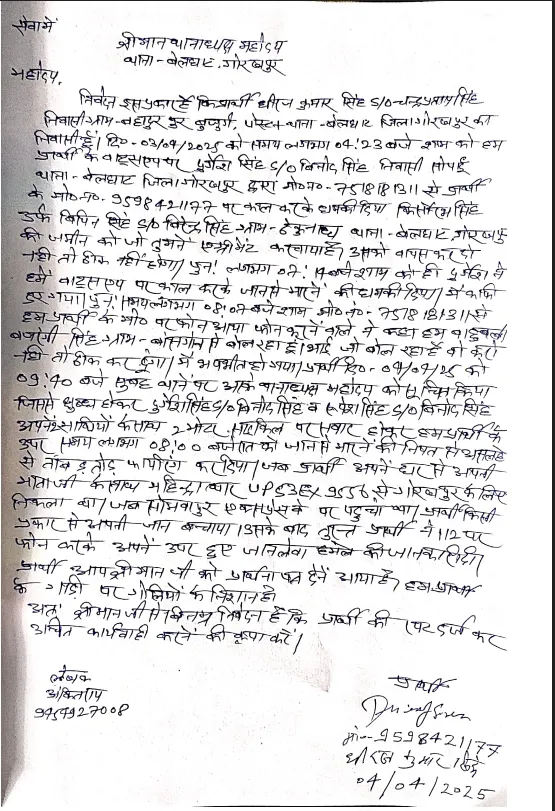 सेवामें
श्रीमान थानाध्यक्ष महोदय
थाना-बेलघाट, गोरखपुर
महोदय,
निवेदन इस प्रकार है कि प्रार्थी धीरज कुमार सिंह S/O चन्द्रप्रताप सिंह
निवासी ग्राम-बहादुरपुर बुजुर्ग, पोस्ट-थाना-बेलघाट जिला गोरखपुर का
निवासी हूँ। दि०-03/04/2025 को समय लगभग 04:23 बजे शाम को हम
प्रार्थी के वाट्सएप पर दुर्गेश सिंह S/O विनोद सिंह निवासी सोपाई
थाना-बेलघाट जिला गोरखपुर द्वारा मो०न०-7518181311 से प्रार्थी
के मो०न०-9598421177 पर काल करके धमकी दिया कि सिंह
उर्फ विपिन सिंह S/O विरेन्द्र सिंह ग्राम- थाना-बेलघाट, गोरखपुर
की जमीन को जो तुमने एग्रीमेंट करवाया है। उसको वापस कर दो
नहीं तो ठीक नहीं होगा। पुनः लगभग 07: बजे शाम को ही दुर्गेश ने
हमें वाट्सएप पर काल करके जान से मारने की धमकी दिया। मैं काफी
डर गया। पुनः समय लगभग 08:07 बजे शाम मो०न०-7518181311 से
हम प्रार्थी के मो० पर फोन आया फोन करने वाले ने कहा हम बाहुबली
बजरंगी सिंह-ग्राम-बांसगांव से बोल रहा हूँ। भाई जो बोल रहा है वो करो
नहीं तो ठीक कर दूंगा। मैं भयभीत हो गया। प्रार्थी दि०-04/04/25 को
09:40 बजे सुबह थाने पर आके थानाध्यक्ष महोदय को सूचित किया
जिससे क्षुब्ध होकर दुर्गेश सिंह S/O विनोद सिंह व सिंह S/O विनोद सिंह
अपने साथियों के साथ 2 मोटर साइकिल पर सवार होकर हम प्रार्थी के
उपर समय लगभग 08:00 बजे रात को जान से मारने की नियत से असलहे
से ताबड़तोड़ फायरिंग कर दिया। जब प्रार्थी अपने घर से अपनी
माताजी के साथ महिन्द्रा थार UP53EX9556 से गोरखपुर के लिए
निकला था। जब सोमवापुर एक्सप्रेसवे पर पहुंचा था। प्रार्थी किसी
प्रकार से अपनी जान बचाया। उसके बाद तुरन्त प्रार्थी ने 112 पर
फोन करके अपने उपर हुए जानलेवा हमले की जानकारी दी।
प्रार्थी आप श्रीमान जी को प्रार्थना पत्र देने आया है। हम प्रार्थी
के गाड़ी पर गोलियों के निशान है।
अतः श्रीमान जी से विनम्र निवेदन है कि प्रार्थी की रपट दर्ज कर
उचित कार्यवाही करने की कृपा करें।
लेखक
अंकित राय
9454927008
प्रार्थी
मो०-9598421177
धीरज कुमार सिंह
04/04/2025